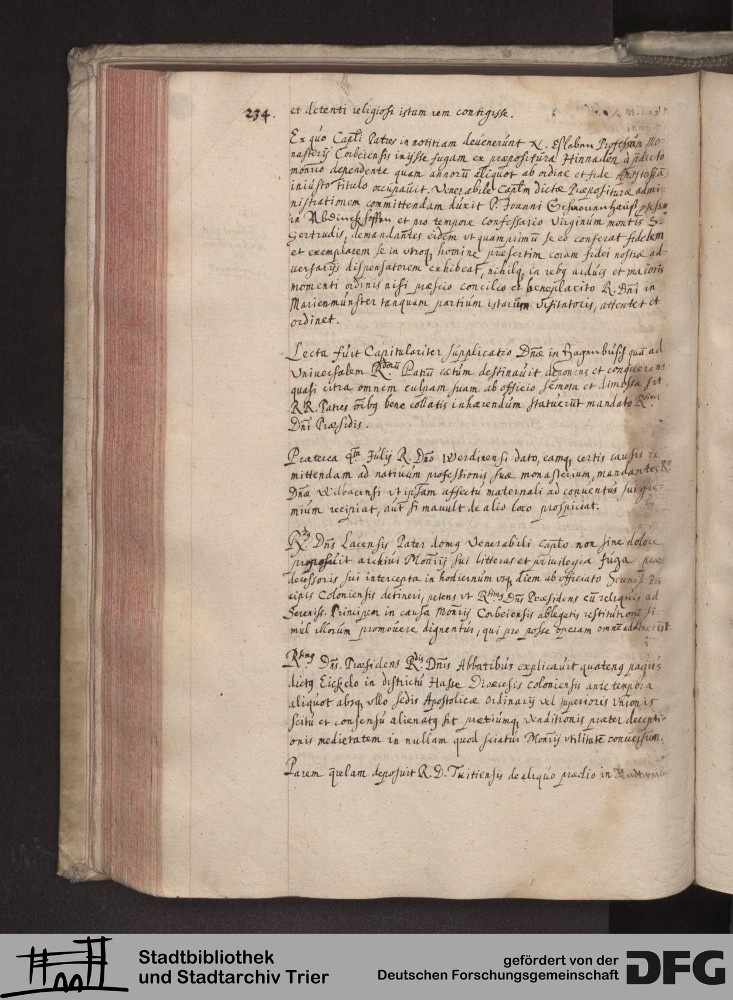 234.
et detenti religiosi istam rem contigisse.
Ex quo Capli Patres in notitiam deuenerunt Professum Mo-
nasterij Corbeiensis inijsse fugam ex praepositura Hinnaden à pdicto
monrio dependente quam annorū aliquot ab ordine et fide Apostosia
iniusto titulo occupauit. Venerabile Caplm dictae Praepositurae admi-
nistrationem committendam duxit P. Joanni
in Abdinckhoffen et pro tempore confessario Virginum montis S.
Gertrudis, demandantes eidem ut quamprimū se eo conferat fidelem
et exemplarem se in utroq, homine praesertim coram fidei nostrae ad-
uersarijs dispensatorem exhibeat, nihilq, in rebq arduis et maioris
momenti ordinis nisi praescio concilio et beneplacito R. Dni in
Marienmünster tanquam partium istarum visitatoris, attentet et
ordinet.
Lecta fuit Capitulariter supplicatio Dnae in Hagenbusch quā ad
Vniuersalem Rdorū Patrū coetum destinauit dolens et conquerens
quasi citra omnem culpam suam ab officio semota et dimossa sit.
RR. Patres oibq bene collatis inhaerendum statuerūt mandato Rsmi
Dni Praesidis.
Praeterea 4ta Julij R. Dno Werdinensi dato, eamq, certis causis re
mittendam ad natiuum professionis suae monasterium, mandantes
Dnae Wilbacensi ut ipsam affectu maternali ad conuentus sui gre-
mium recipiat, aut si mauult de alio loco prospiciat.
R. Dns Lacensis Pater domq Venerabili Caplo non sine dolore
proposuit archiui Monrij sui litteras et priuilegia fuga prae
decessoris sui intercepta in hodiernum usq, diem ab officiato Sereniss. Prin
cipis Coloniensis detineri, petens ut Rsmus Dns Praesidens cū reliquis ad
Sereniss. Principem in causa Monrij Corbeiensis ablegatis restitutionē si-
mul illorum promouere dignentur, qui pro posse operam omnē
Rsmus Dns. Praesidens Rdis Dnis Abbatibus explicauit quatenq pagus
dictq Eickelo in districtu Hasse Dioecesis Coloniensis ante tempora
aliquot absq, ullo sedis Apostolicae Ordinarij vel superioris Vnionis
scitu et consensu alienatq sit pretiumq, venditionis praeter decepti-
onis medietatem in nullam quod sciatur Monrij utilitatē conuersum.
Parem qrelam deposuit R. D. Tuitiensis de aliquo praedio in
Stadtbibliothek
und Stadtarchiv Trier
gefördert von der
Deutschen Forschungsgemeinschaft
DFG